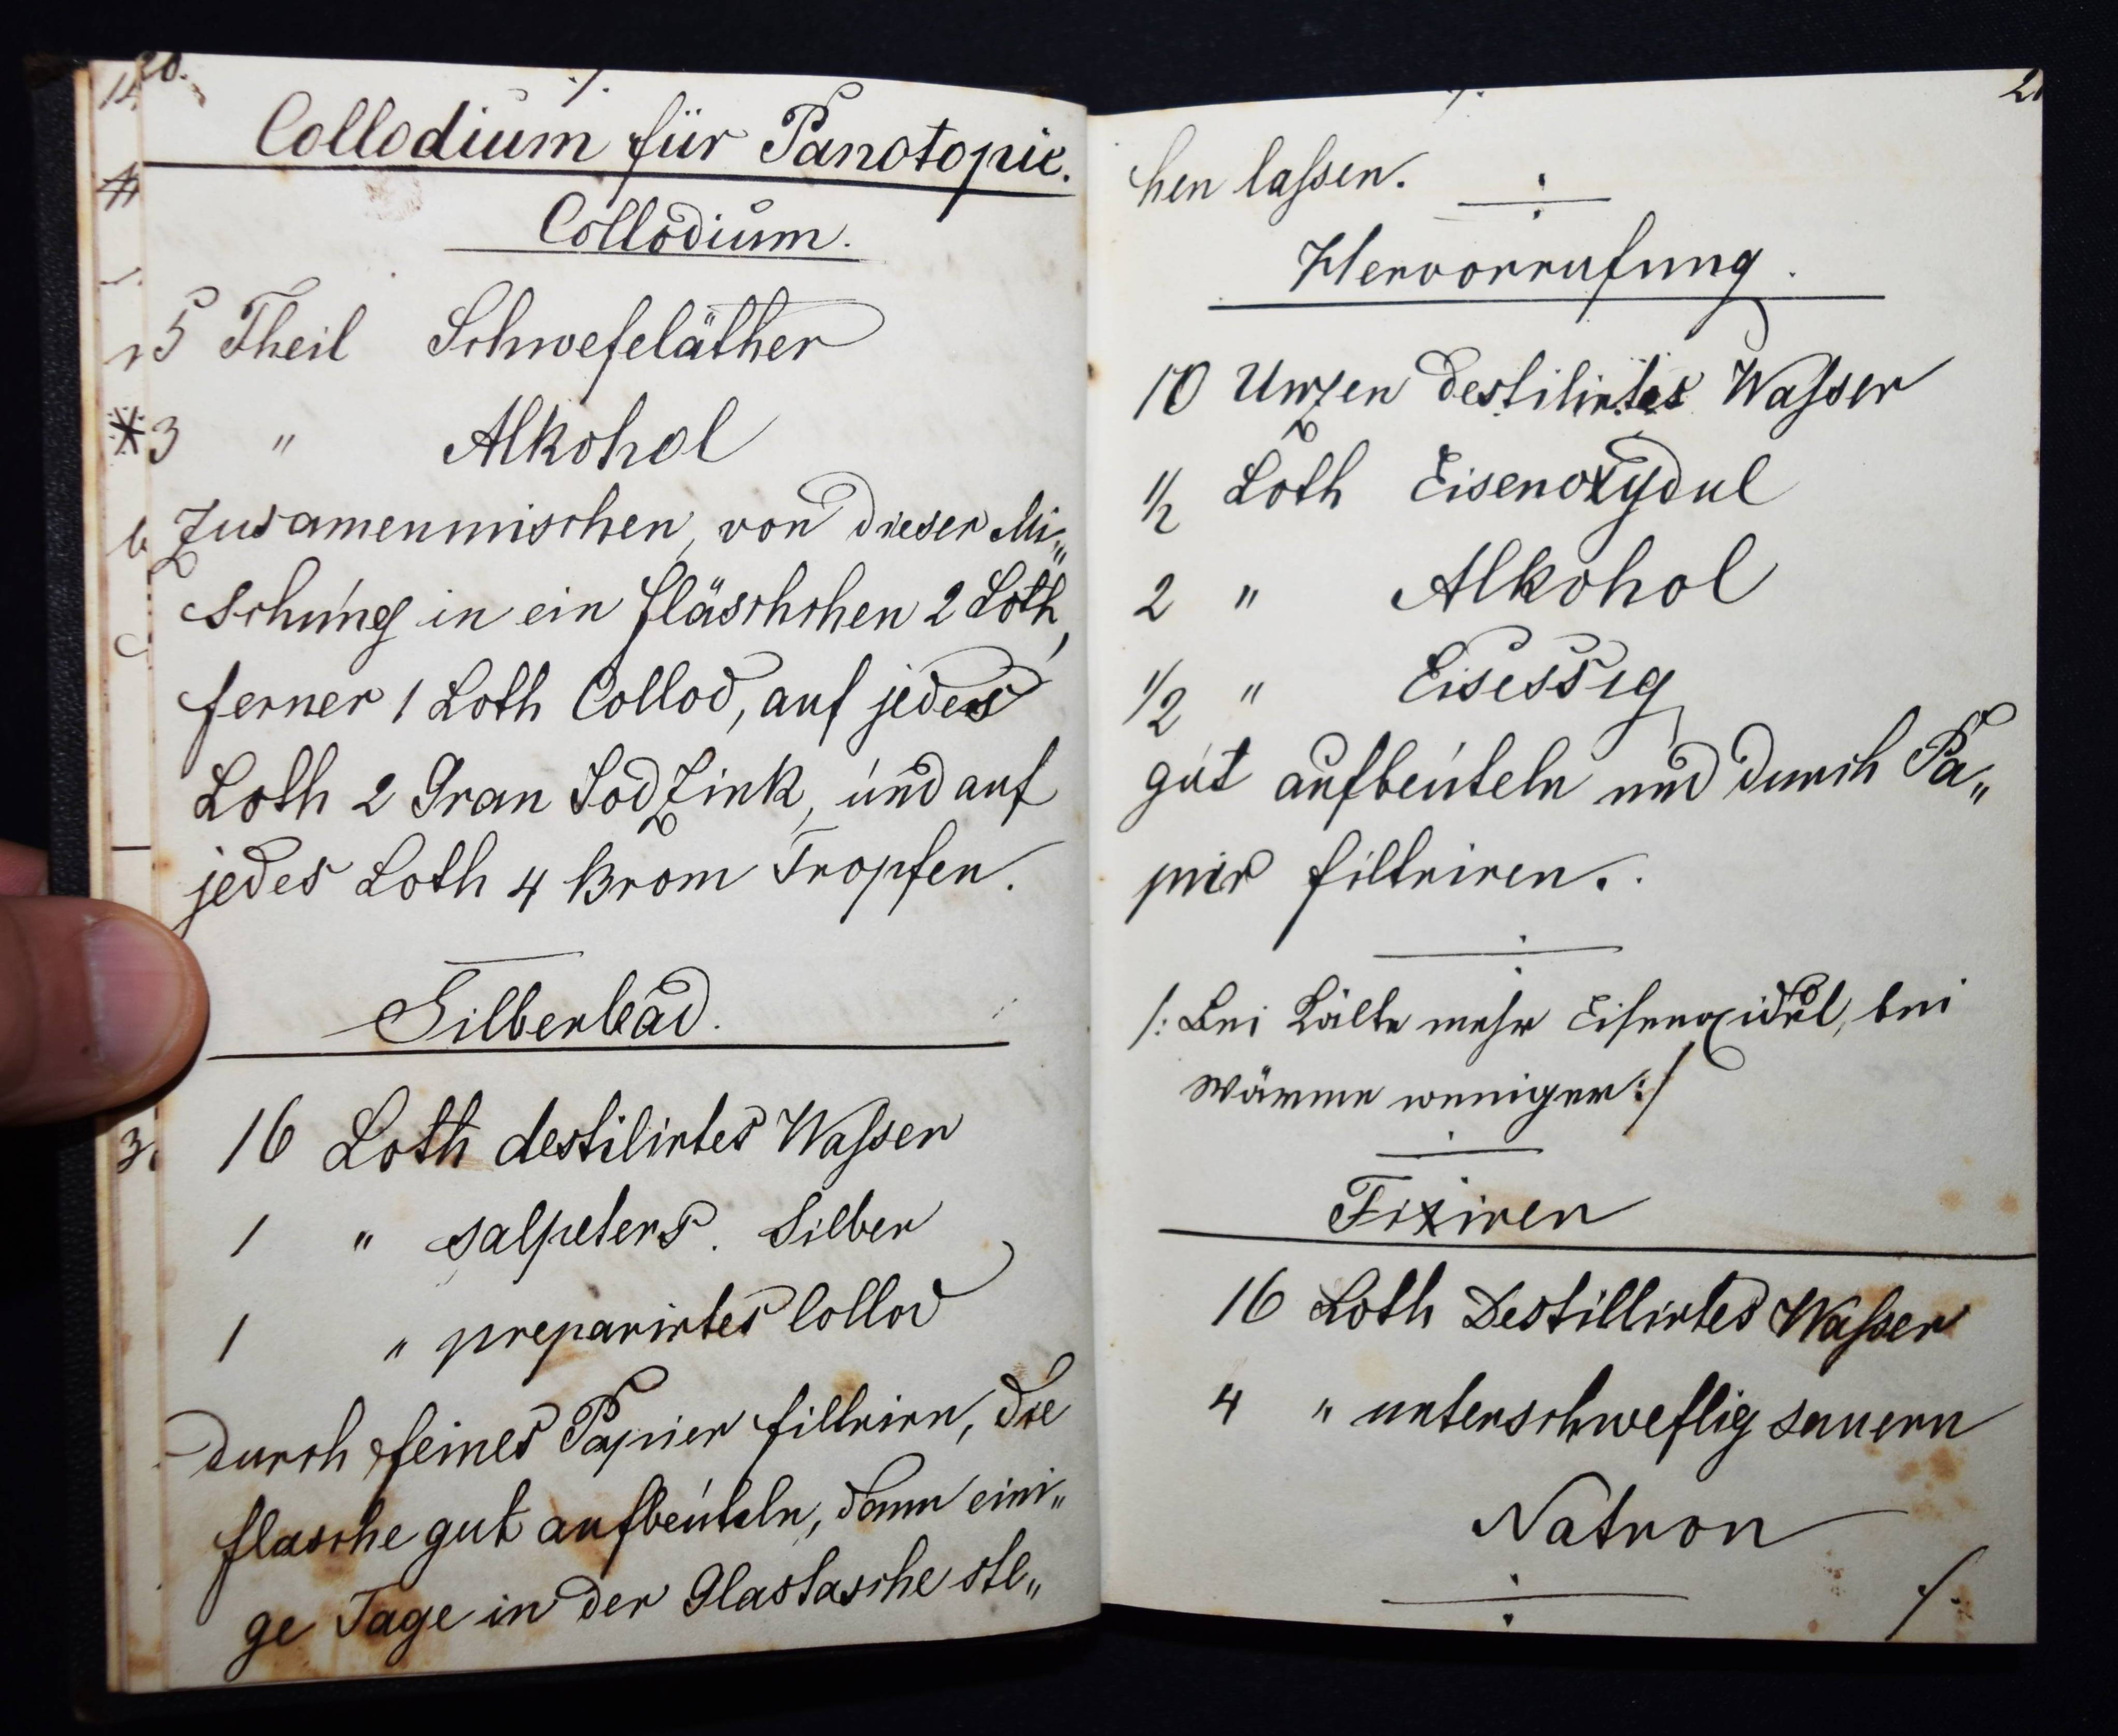 20.
./.
Collodium für Panotopie.
Collodium.
5 Theil Schwefeläther
3 " Alkohol
Zusamenmischen, von dieser Mi„
schung in ein fläschchen 2 Loth,
ferner 1 Loth Collod, auf jedes
Loth 2 Gran JodZink, und auf
jedes Loth 4 Brom Tropfen.
Silberbad.
16 Loth destilirtes Waſser
1 " salpeters. Silber
1 " preparirtes Collod
durch feines Papier filtrirn, die
flasche gut aufbeuteln, dann eini„
ge Tage in der Glastasche ste„
./.
21
hen laſsen.
Hervorrufung.
10 Unzen destilirtes Waſser
1/2 Loth Eisenoxydul
2 " Alkohol
1/2 " Eisessig
gut aufbeuteln und durch Pa„
pir filtriren.
/: Bei Kälte mehr Eisenoxidul, bei
Wärme weniger :/
Fixiren
16 Loth Destillirtes Waſser
4 " unterschweflig sauern
Natron
./.